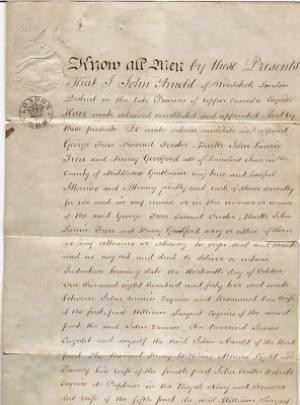 Know all Men by these Presents
That I John Arnold of Woodstock London
District in the late Province of Upper Canada Esquire
Have made ordained constituted and appointed And by
these presents Do make ordain constitute and appoint
George Frere Samuel Forster Twattle John Laurie
Frere and Henry Goodford all of Lincolns Inn in the
County of Middlesex Gentlemen my true and lawful
Attornies and Attorney jointly and each of them severally
for me and in my name or in the names or name
of the said George Frere Samuel Forster Twattle John
Laurie Frere and Henry Goodford any or either of them
as my attornies or attorney to sign seal and
and as my act and deed to deliver a certain
Indenture bearing date the day of October
One thousand eight hundred and forty two and made
between John Esquire and his wife
of the first part William Sargent Esquire of the second
part the said John The Reverend James
and myself the said John Arnold of the third
part The Henry William
his wife of the fourth part John
Esquire a Captain in the Royal Navy and Frances
his wife of the fifth part the said William Sargent
LONDON